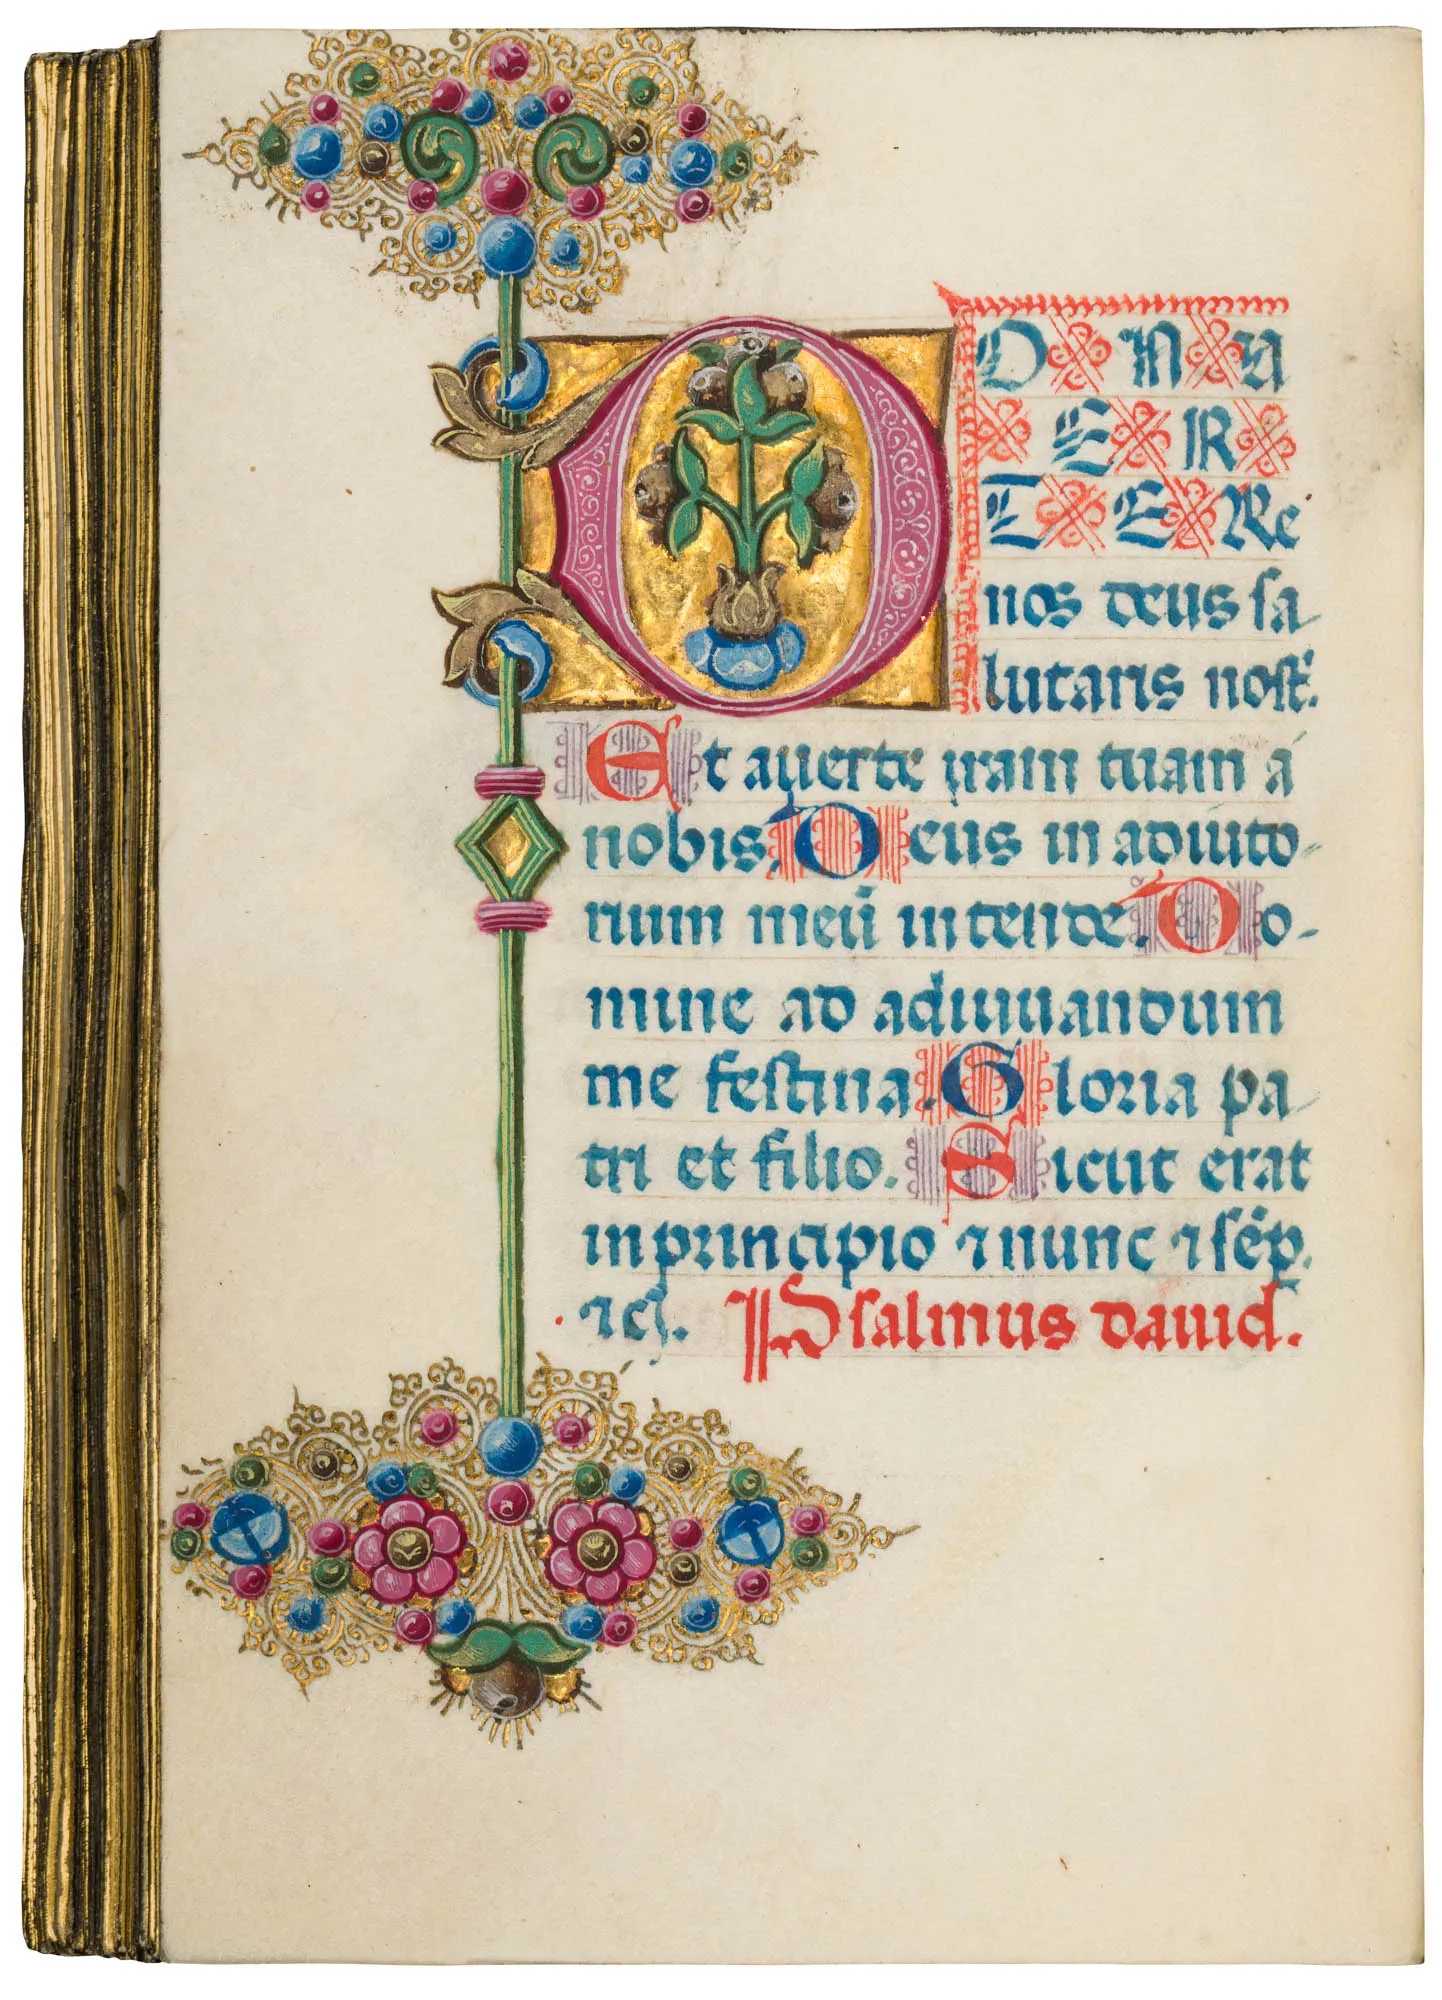 C O N U
E R
T E Re
nos deus sa-
lutaris nostˀ.
Et auerte iram tuam á
nobis. Deus in adiuto-
rium meū intende. Do-
mine ad adiuuandum
me festina. Gloria pa-
tri et filio. Sicut erat
in principio ⁊ nunc ⁊ sēp.
⁊ cꝭ. Psalmus dauid.